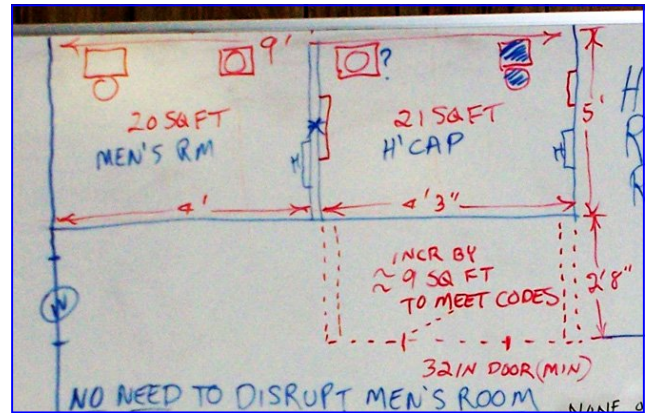 9'
?
20 SQ FT
MEN'S RM
H
21 SQ FT
H'CAP
H
5'
4'
4' 3"
INCR BY
≈ 9 SQ FT
TO MEET CODES
2' 8"
W
32 IN DOOR (MIN)
NO NEED TO DISRUPT MEN'S ROOM
H
R
R